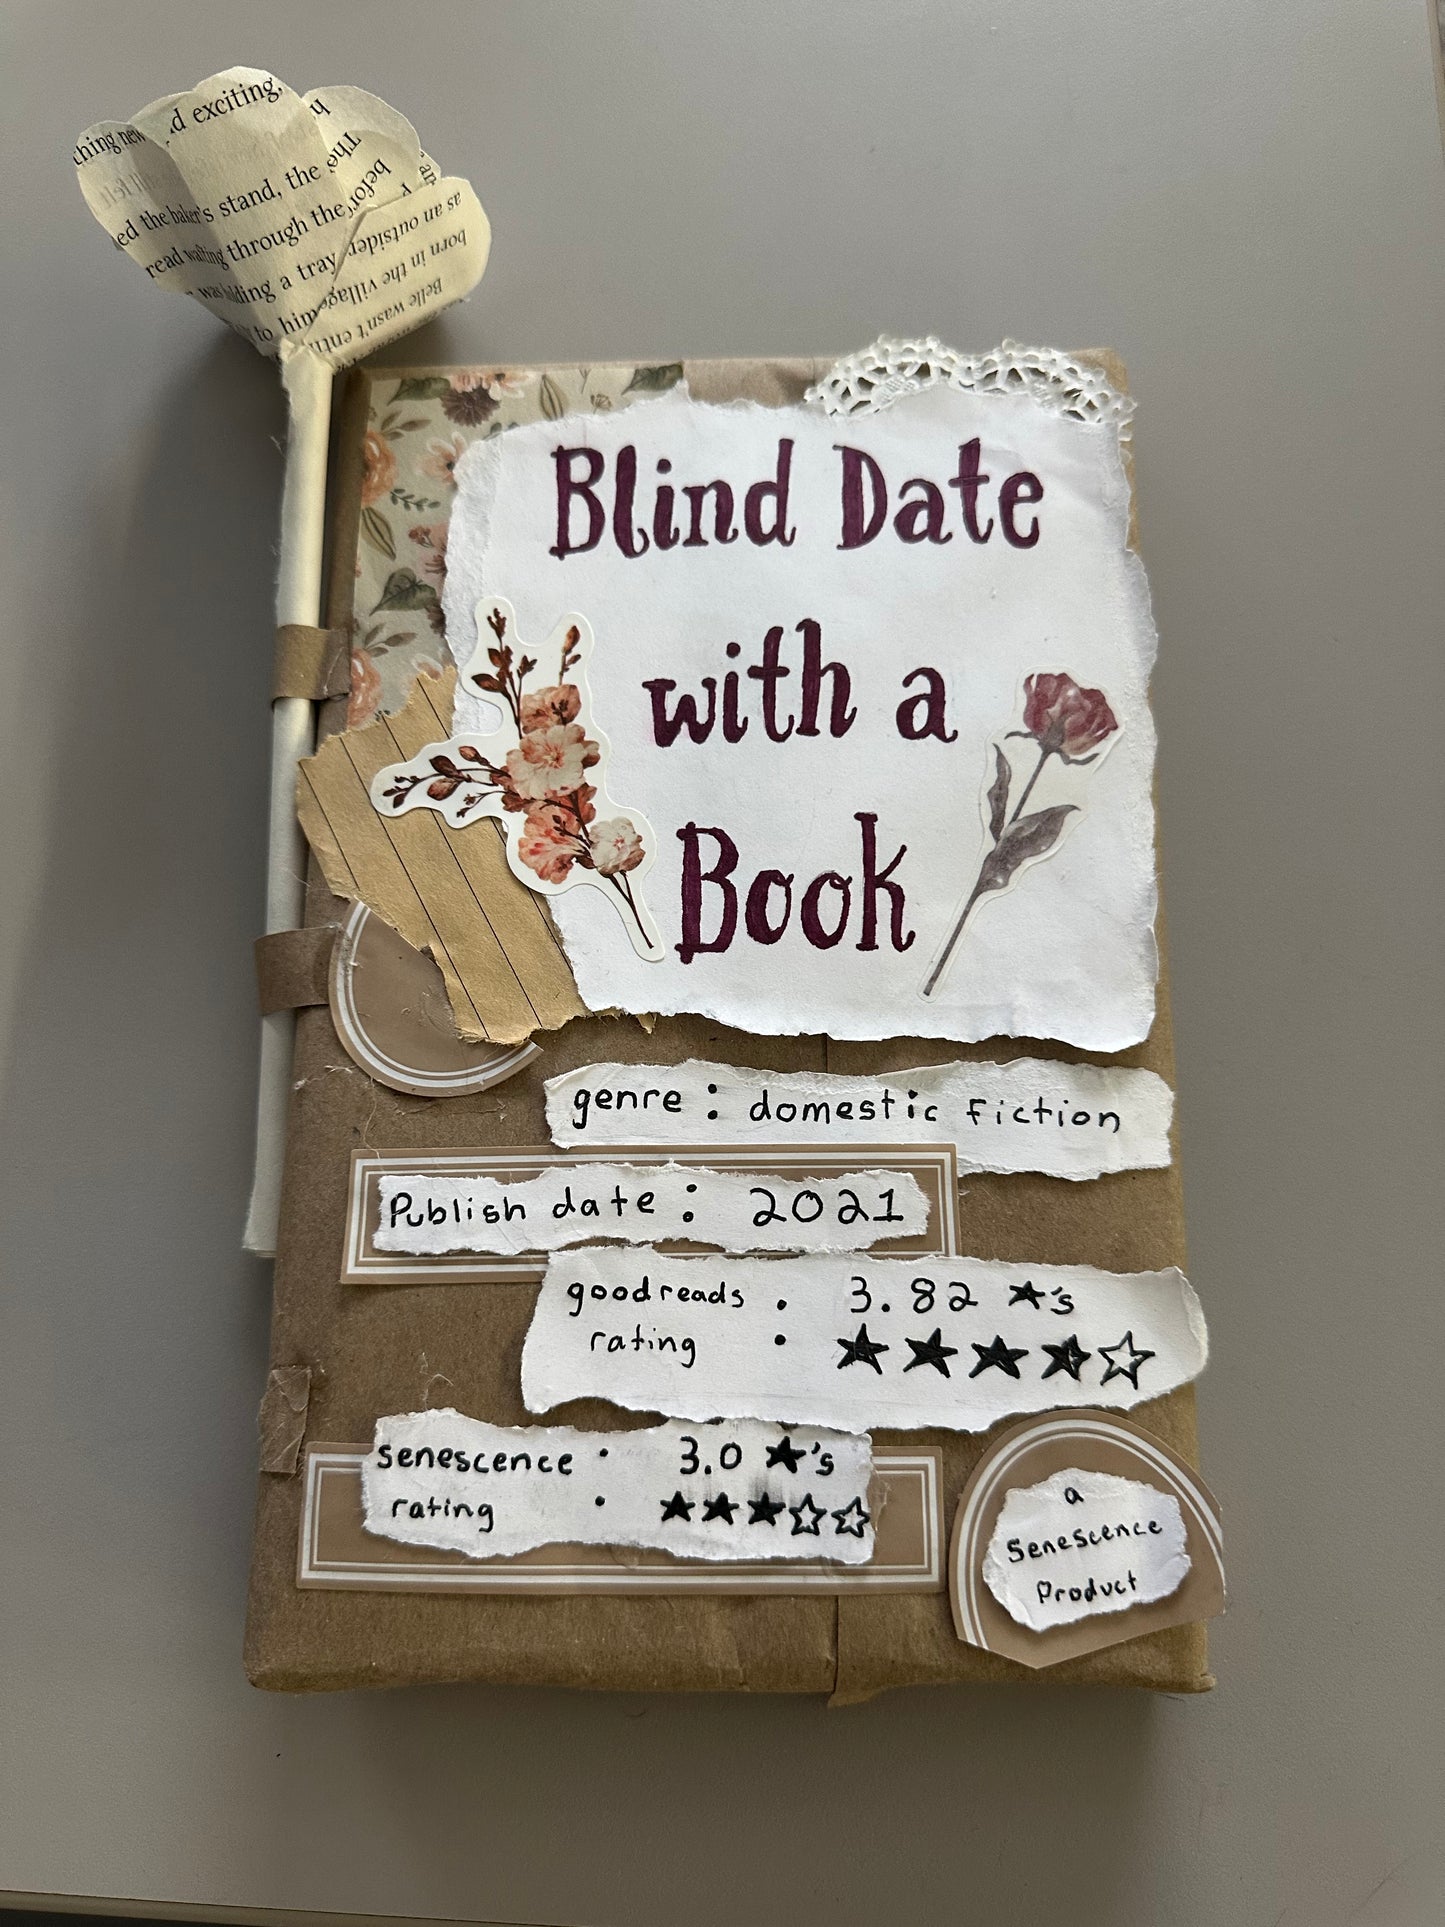 thing new
d exciting,
h
ed the baker's stand, the
The
before
read wafting through the
was holding a tray
to him
as an outsider
born in the village
Belle wasn't enti
Blind Date
with a
Book
genre : domestic fiction
Publish date : 2021
goodreads : 3.82 ★'s
rating ★★★★☆
senescence : 3.0 ★'s
rating ★★★☆☆
a
Senescence
Product